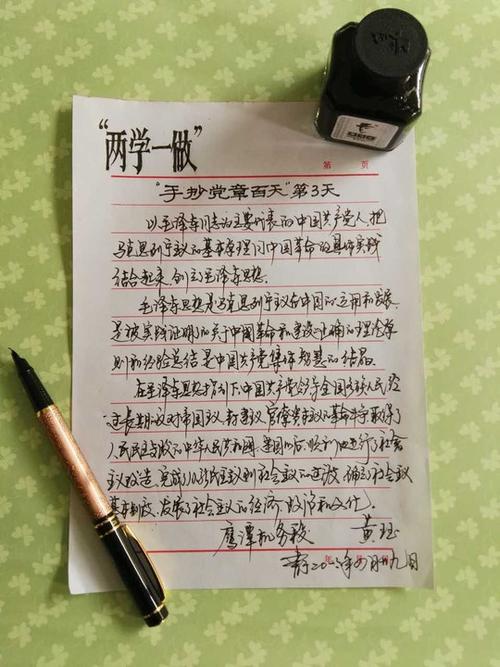 “两学一做”
第 页
“手抄党章百天”第3天
以毛泽东同志为主要代表的中国共产党人,把
马克思列宁主义的基本原理同中国革命的具体实践
结合起来,创立了毛泽东思想。
毛泽东思想是马克思列宁主义在中国的运用和发展,
是被实践证明了的关于中国革命和建设的正确的理论原
则和经验总结,是中国共产党集体智慧的结晶。
在毛泽东思想指引下,中国共产党领导全国各族人民,经
过长期的反对帝国主义、封建主义、官僚资本主义的革命斗争,取得了
人民民主专政的中华人民共和国。建国以后,顺利地进行了社会
主义改造,完成了从新民主主义到社会主义的过渡,确立了社会主义
基本制度,发展了社会主义的经济、政治和文化。
鹰潭机务段 黄珏
年 月 日